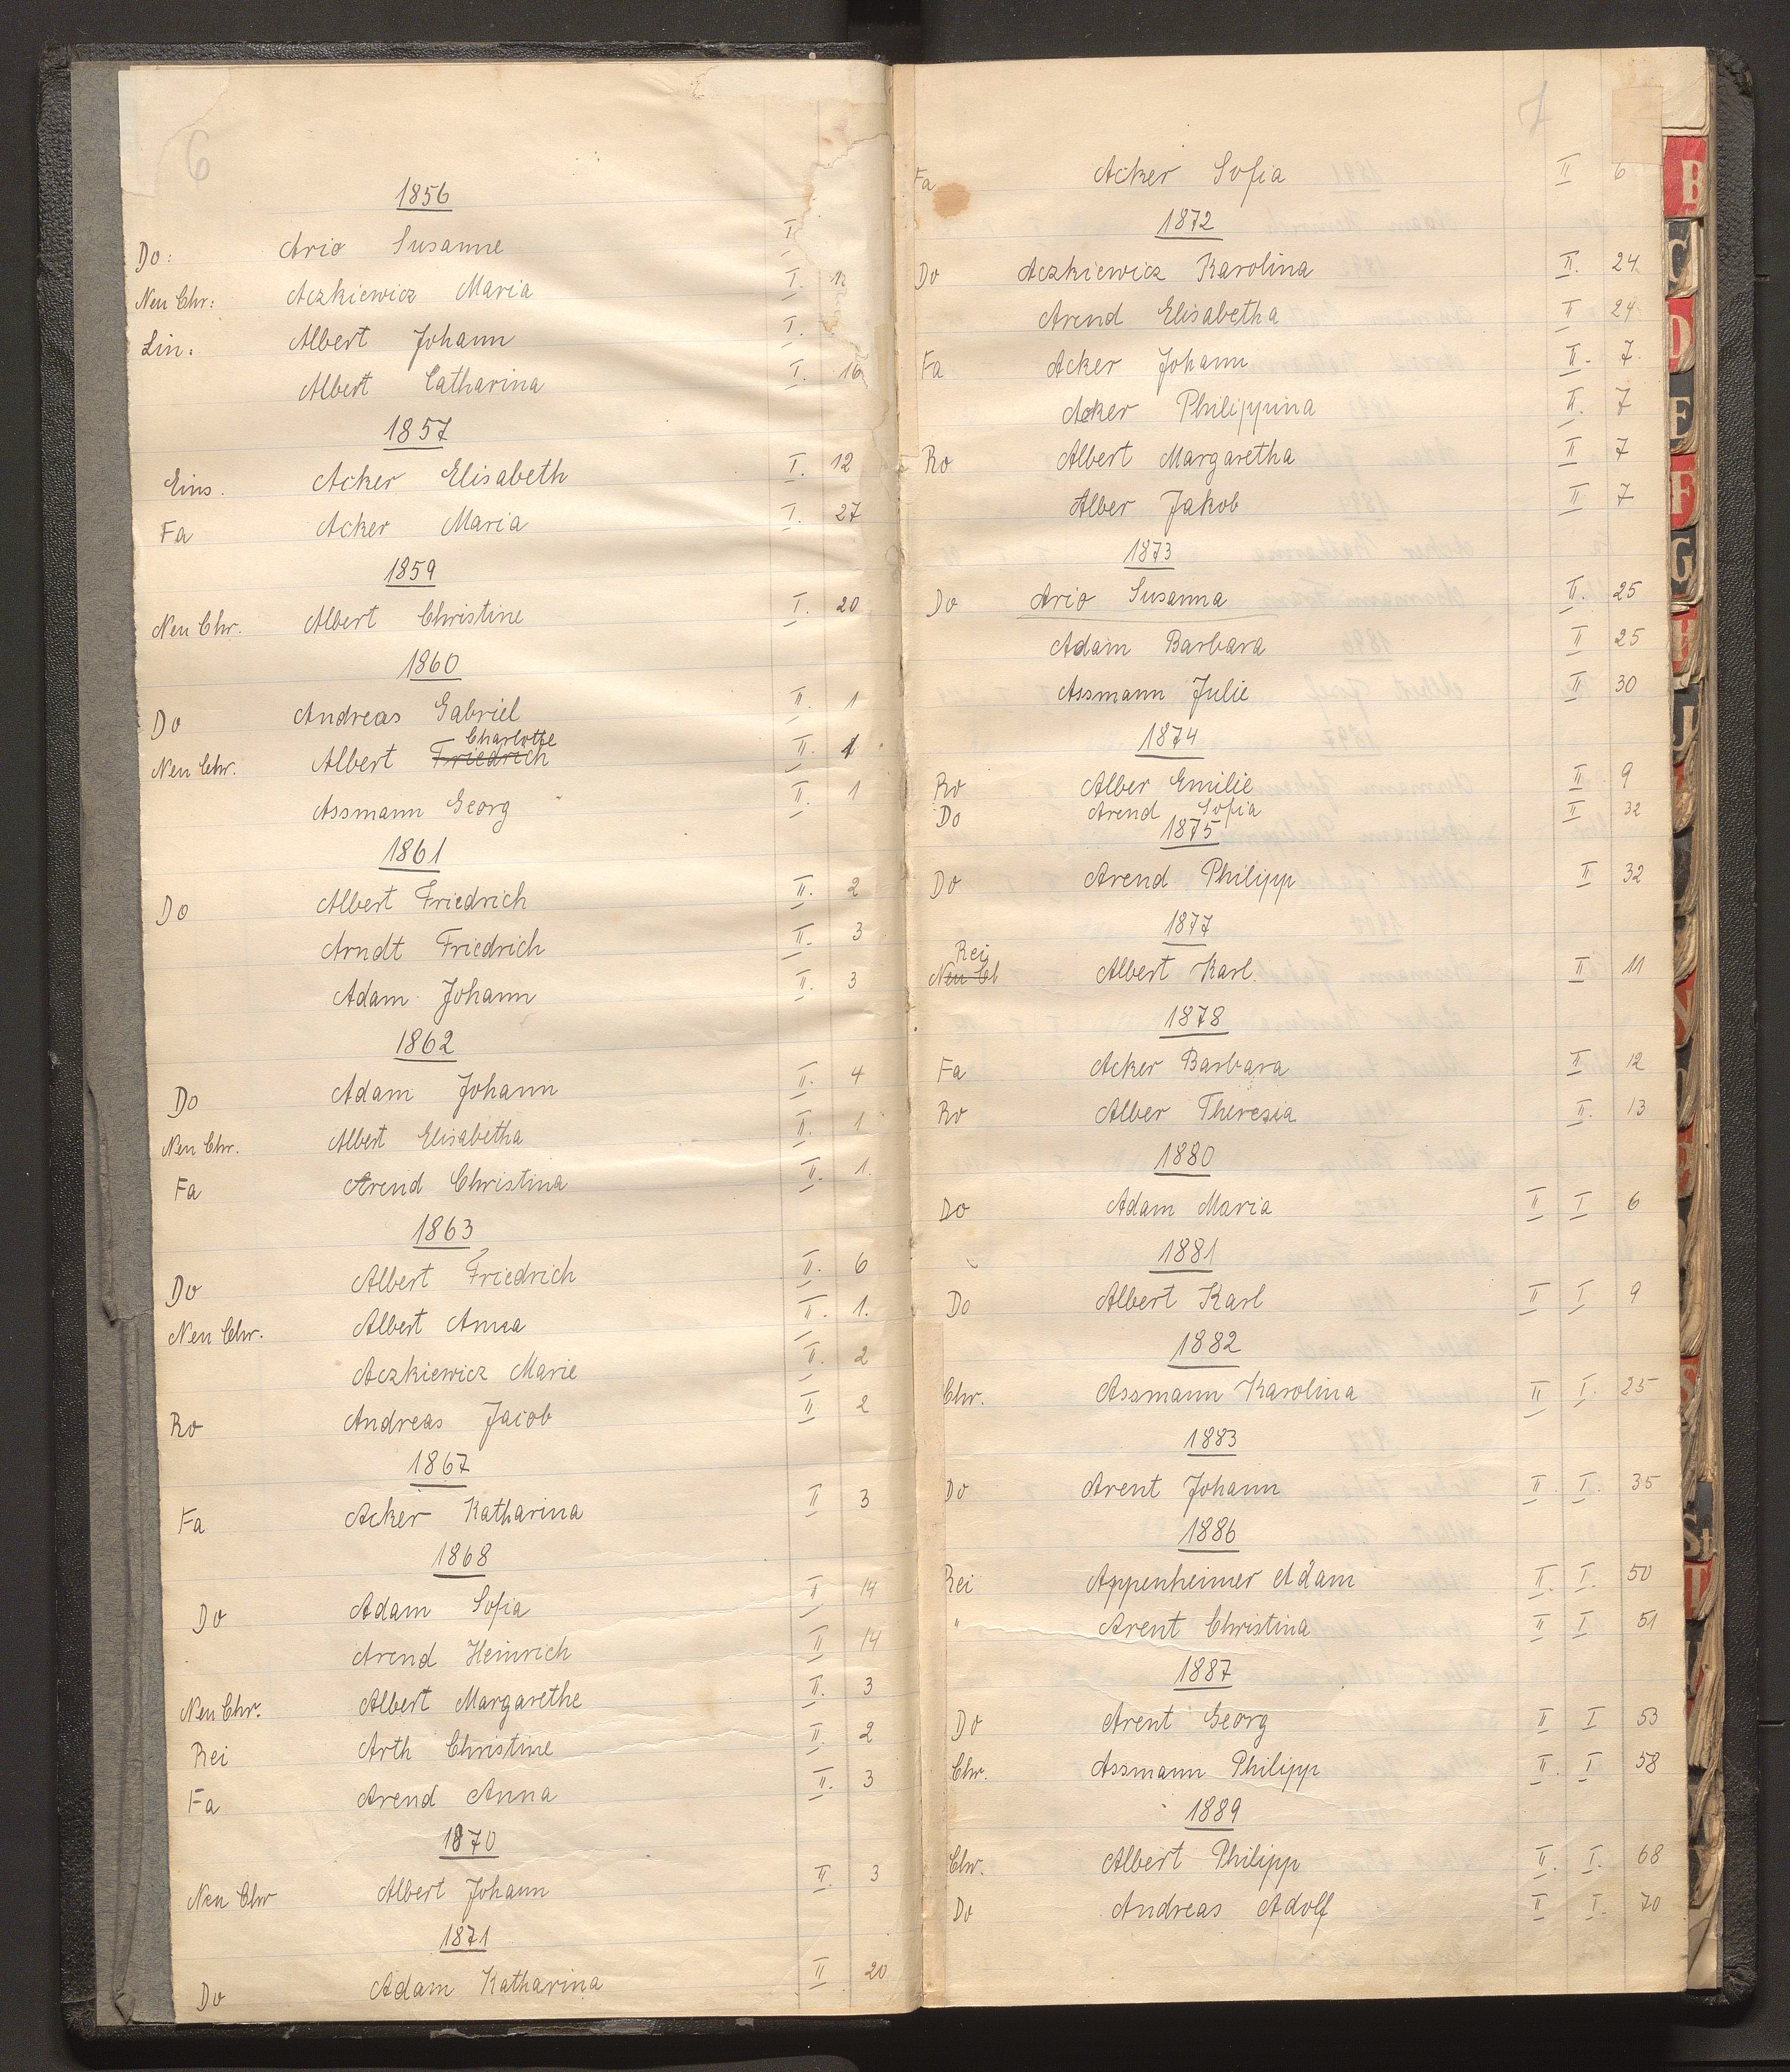 6
1856
Do: Ario Susanne I.
Neu Chr: Aczkiewicz Maria I. 12
Lin: Albert Johann I.
Albert Catharina I. 16
1857
Eins. Acker Elisabeth I. 12
Fa Acker Maria I. 27
1859
Neu Chr. Albert Christine I. 20
1860
Do Andreas Gabriel II. 1
Charlotte
Neu Chr. Albert Friedrich II. 1
Assmann Georg II. 1
1861
Do Albert Friedrich II. 2
Arndt Friedrich II. 3
Adam Johann II. 3
1862
Do Adam Johann II. 4
Neu Chr. Albert Elisabetha II. 1
Fa Arend Christina II. 1.
1863
Do Albert Friedrich II. 6
Neu Chr. Albert Anna II. 1.
Aczkiewicz Marie II. 2
Ro Andreas Jacob II 2
1867
Fa Acker Katharina II 3
1868
Do Adam Sofia II 14
Arend Heinrich II 14
Neu Chr. Albert Margarethe II. 3
Rei Arth Christine II. 2
Fa Arend Anna II. 3
1870
Neu Chr Albert Johann II. 3
1871
Do Adam Katharina II 20
7
Fa Acker Sofia II 6
1872
Do Aczkiewicz Karolina II. 24
Arend Elisabetha II 24
Fa Acker Johann II. 7.
Acker Philippina II. 7
Ro Albert Margaretha II 7
Alber Jakob II 7
1873
Do Ario Susanna II. 25
Adam Barbara II 25
Assmann Julie II 30
1874
Ro Alber Emilie II 9
Do Arend Sofia II 32
1875
Do Arend Philipp II 32
1877
Rei
Neu Ch Albert Karl. II 11
1878
Fa Acker Barbara II 12
Ro Alber Theresia II. 13
1880
Do Adam Maria II I 6
1881
Do Albert Karl II I 9
1882
Chr. Assmann Karolina II I. 25
1883
Do Arent Johann II. I. 35
1886
Rei Appenheimer Adam II. I. 50
" Arent Christina II I 51
1887
Do Arent Georg II I 53
Chr. Assmann Philipp II. I 58
1889
Chr. Albert Philipp II. I. 68
Do Andreas Adolf II I. 70
B
C
D
E
F
G
H
J
St